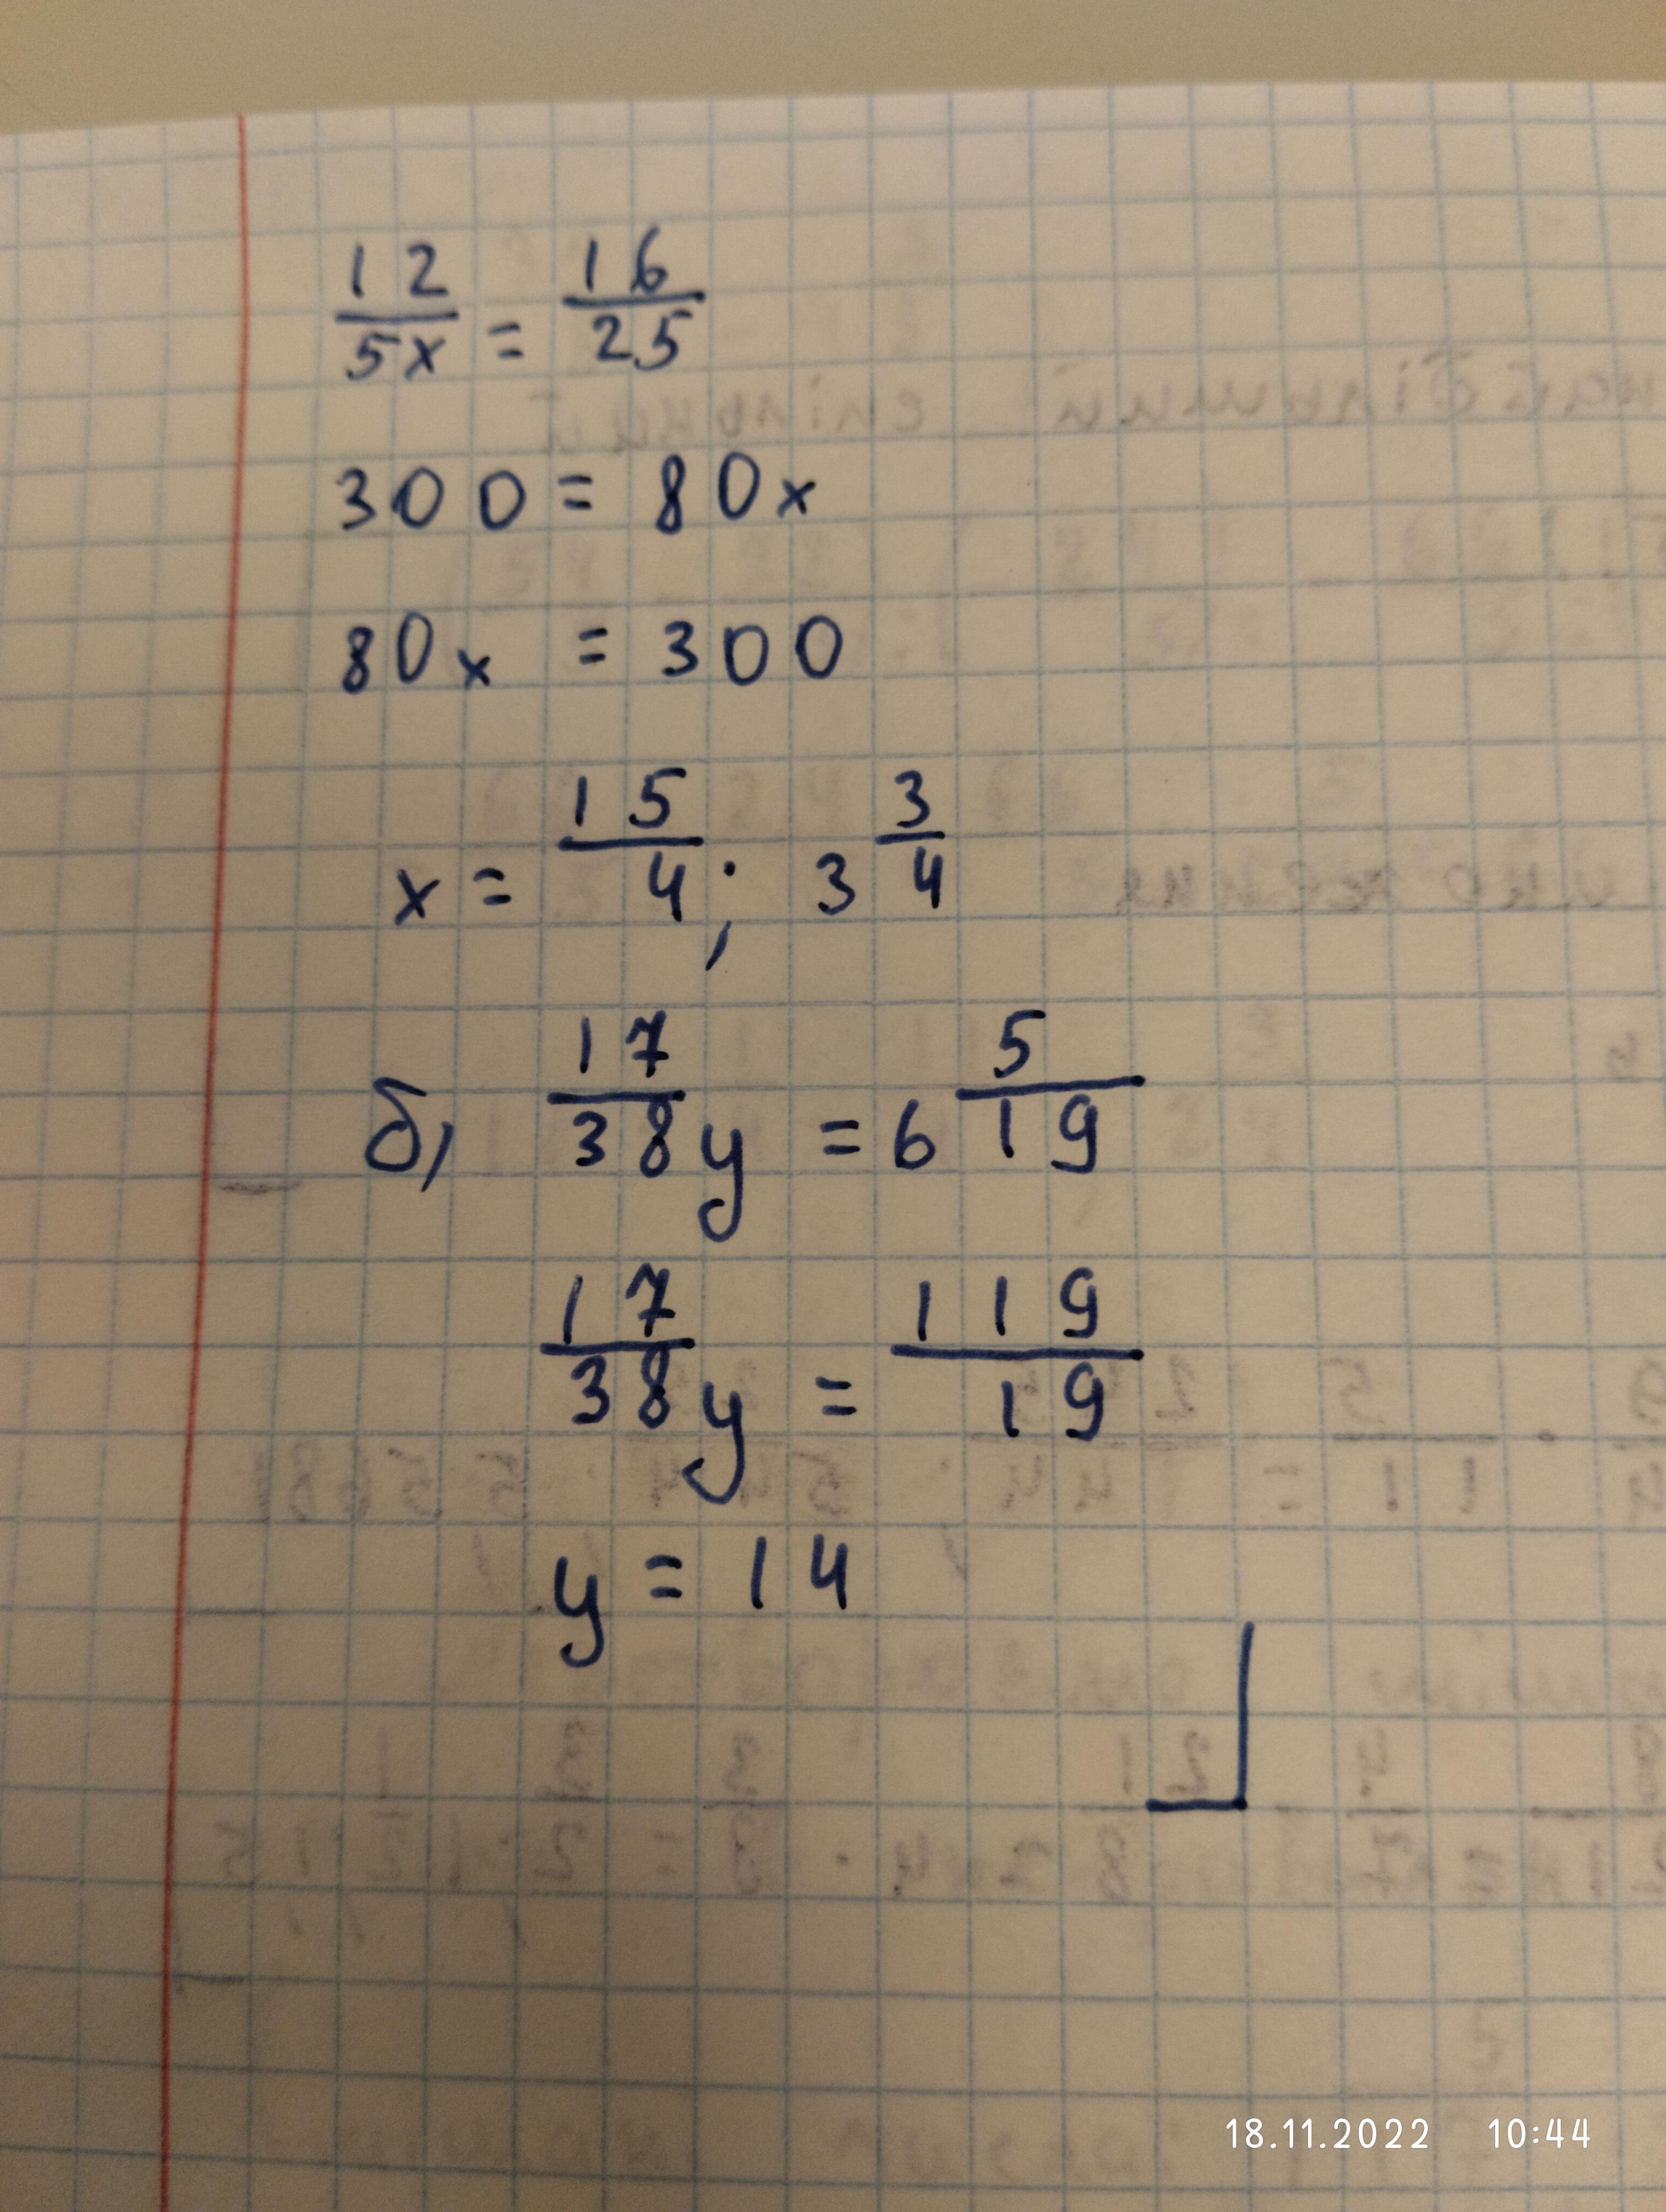 12/5x = 16/25
300 = 80x
80x = 300
x = 15/4; 3 3/4
б) 17/38 y = 6 5/19
17/38 y = 119/19
y = 14
18.11.2022 10:44